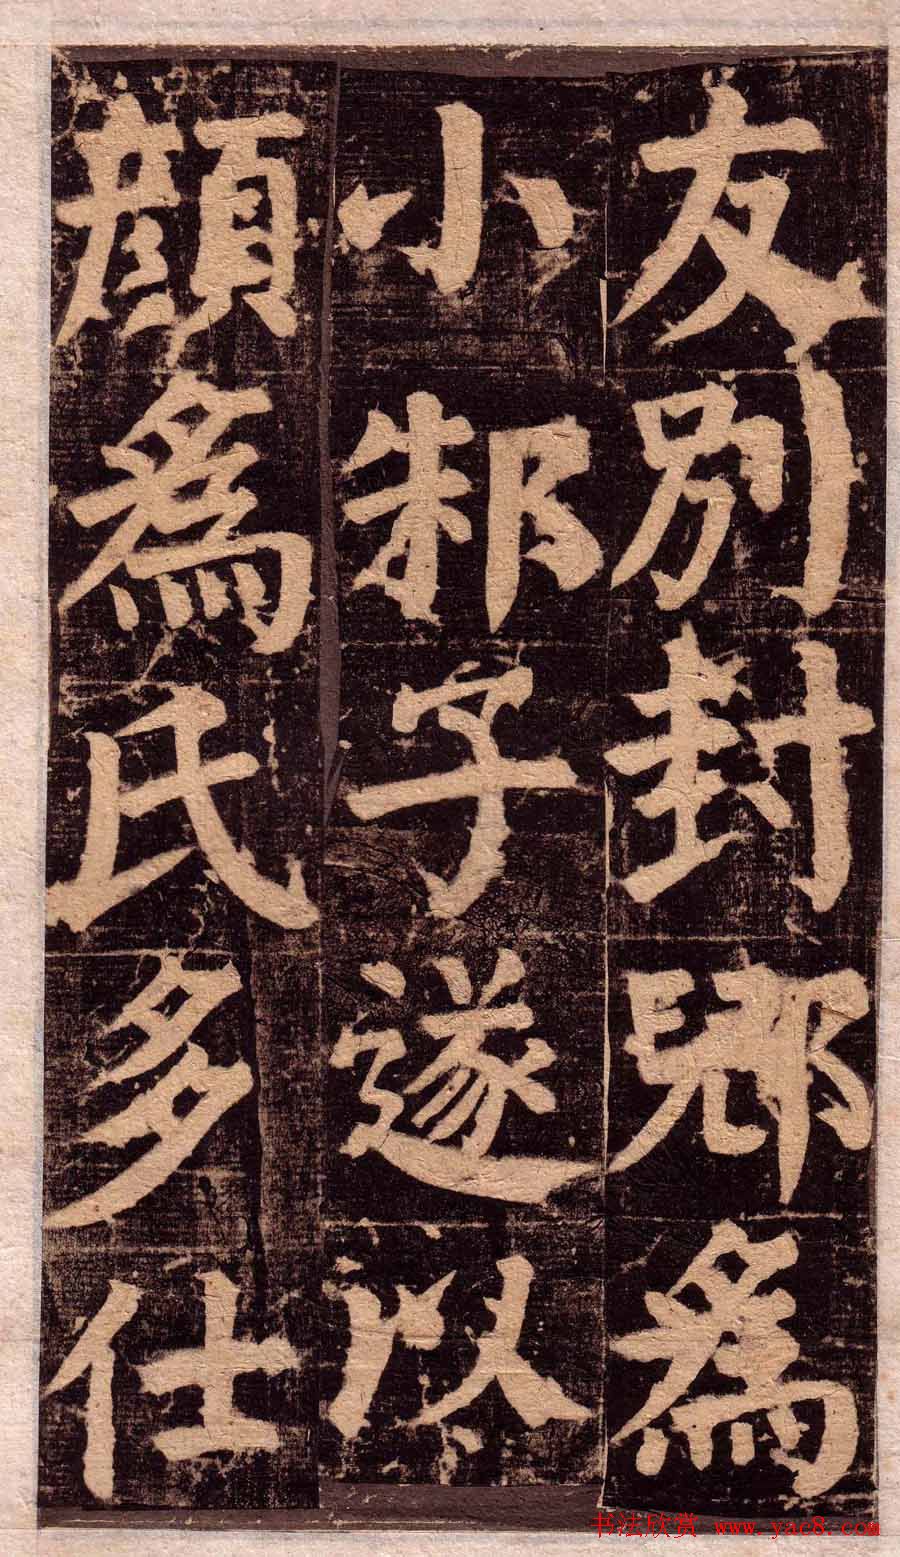 友別封郳爲
小邾子遂以
顏爲氏多仕
书法欣赏 www.yac8.com